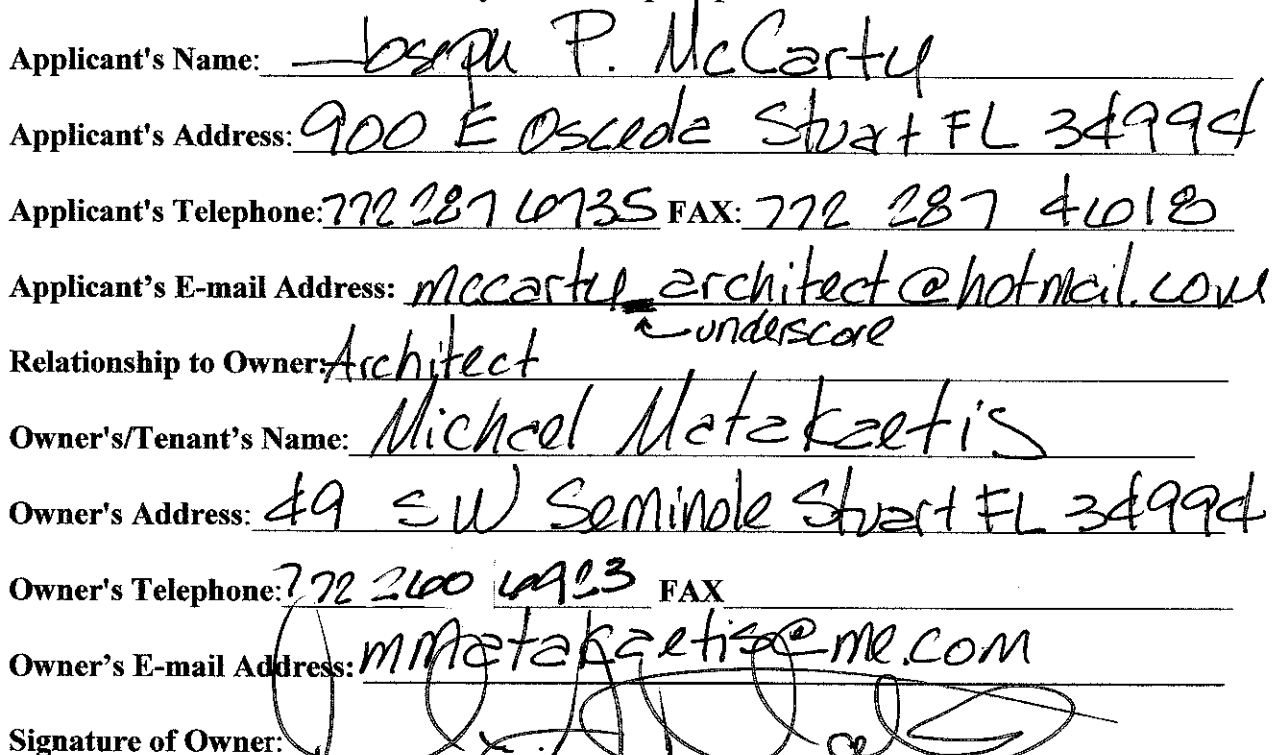 Applicant's Name: Joseph P. McCarty
Applicant's Address: 900 E Osceola Stuart FL 34994
Applicant's Telephone: 772 287 6735 FAX: 772 287 4618
Applicant's E-mail Address: mccarty_architect@hotmail.com
underscore
Relationship to Owner: Architect
Owner's/Tenant's Name: Michael Matakaetis
Owner's Address: 49 SW Seminole Stuart FL 34994
Owner's Telephone: 772 260 6923 FAX
Owner's E-mail Address: mmatakaetis@me.com
Signature of Owner: